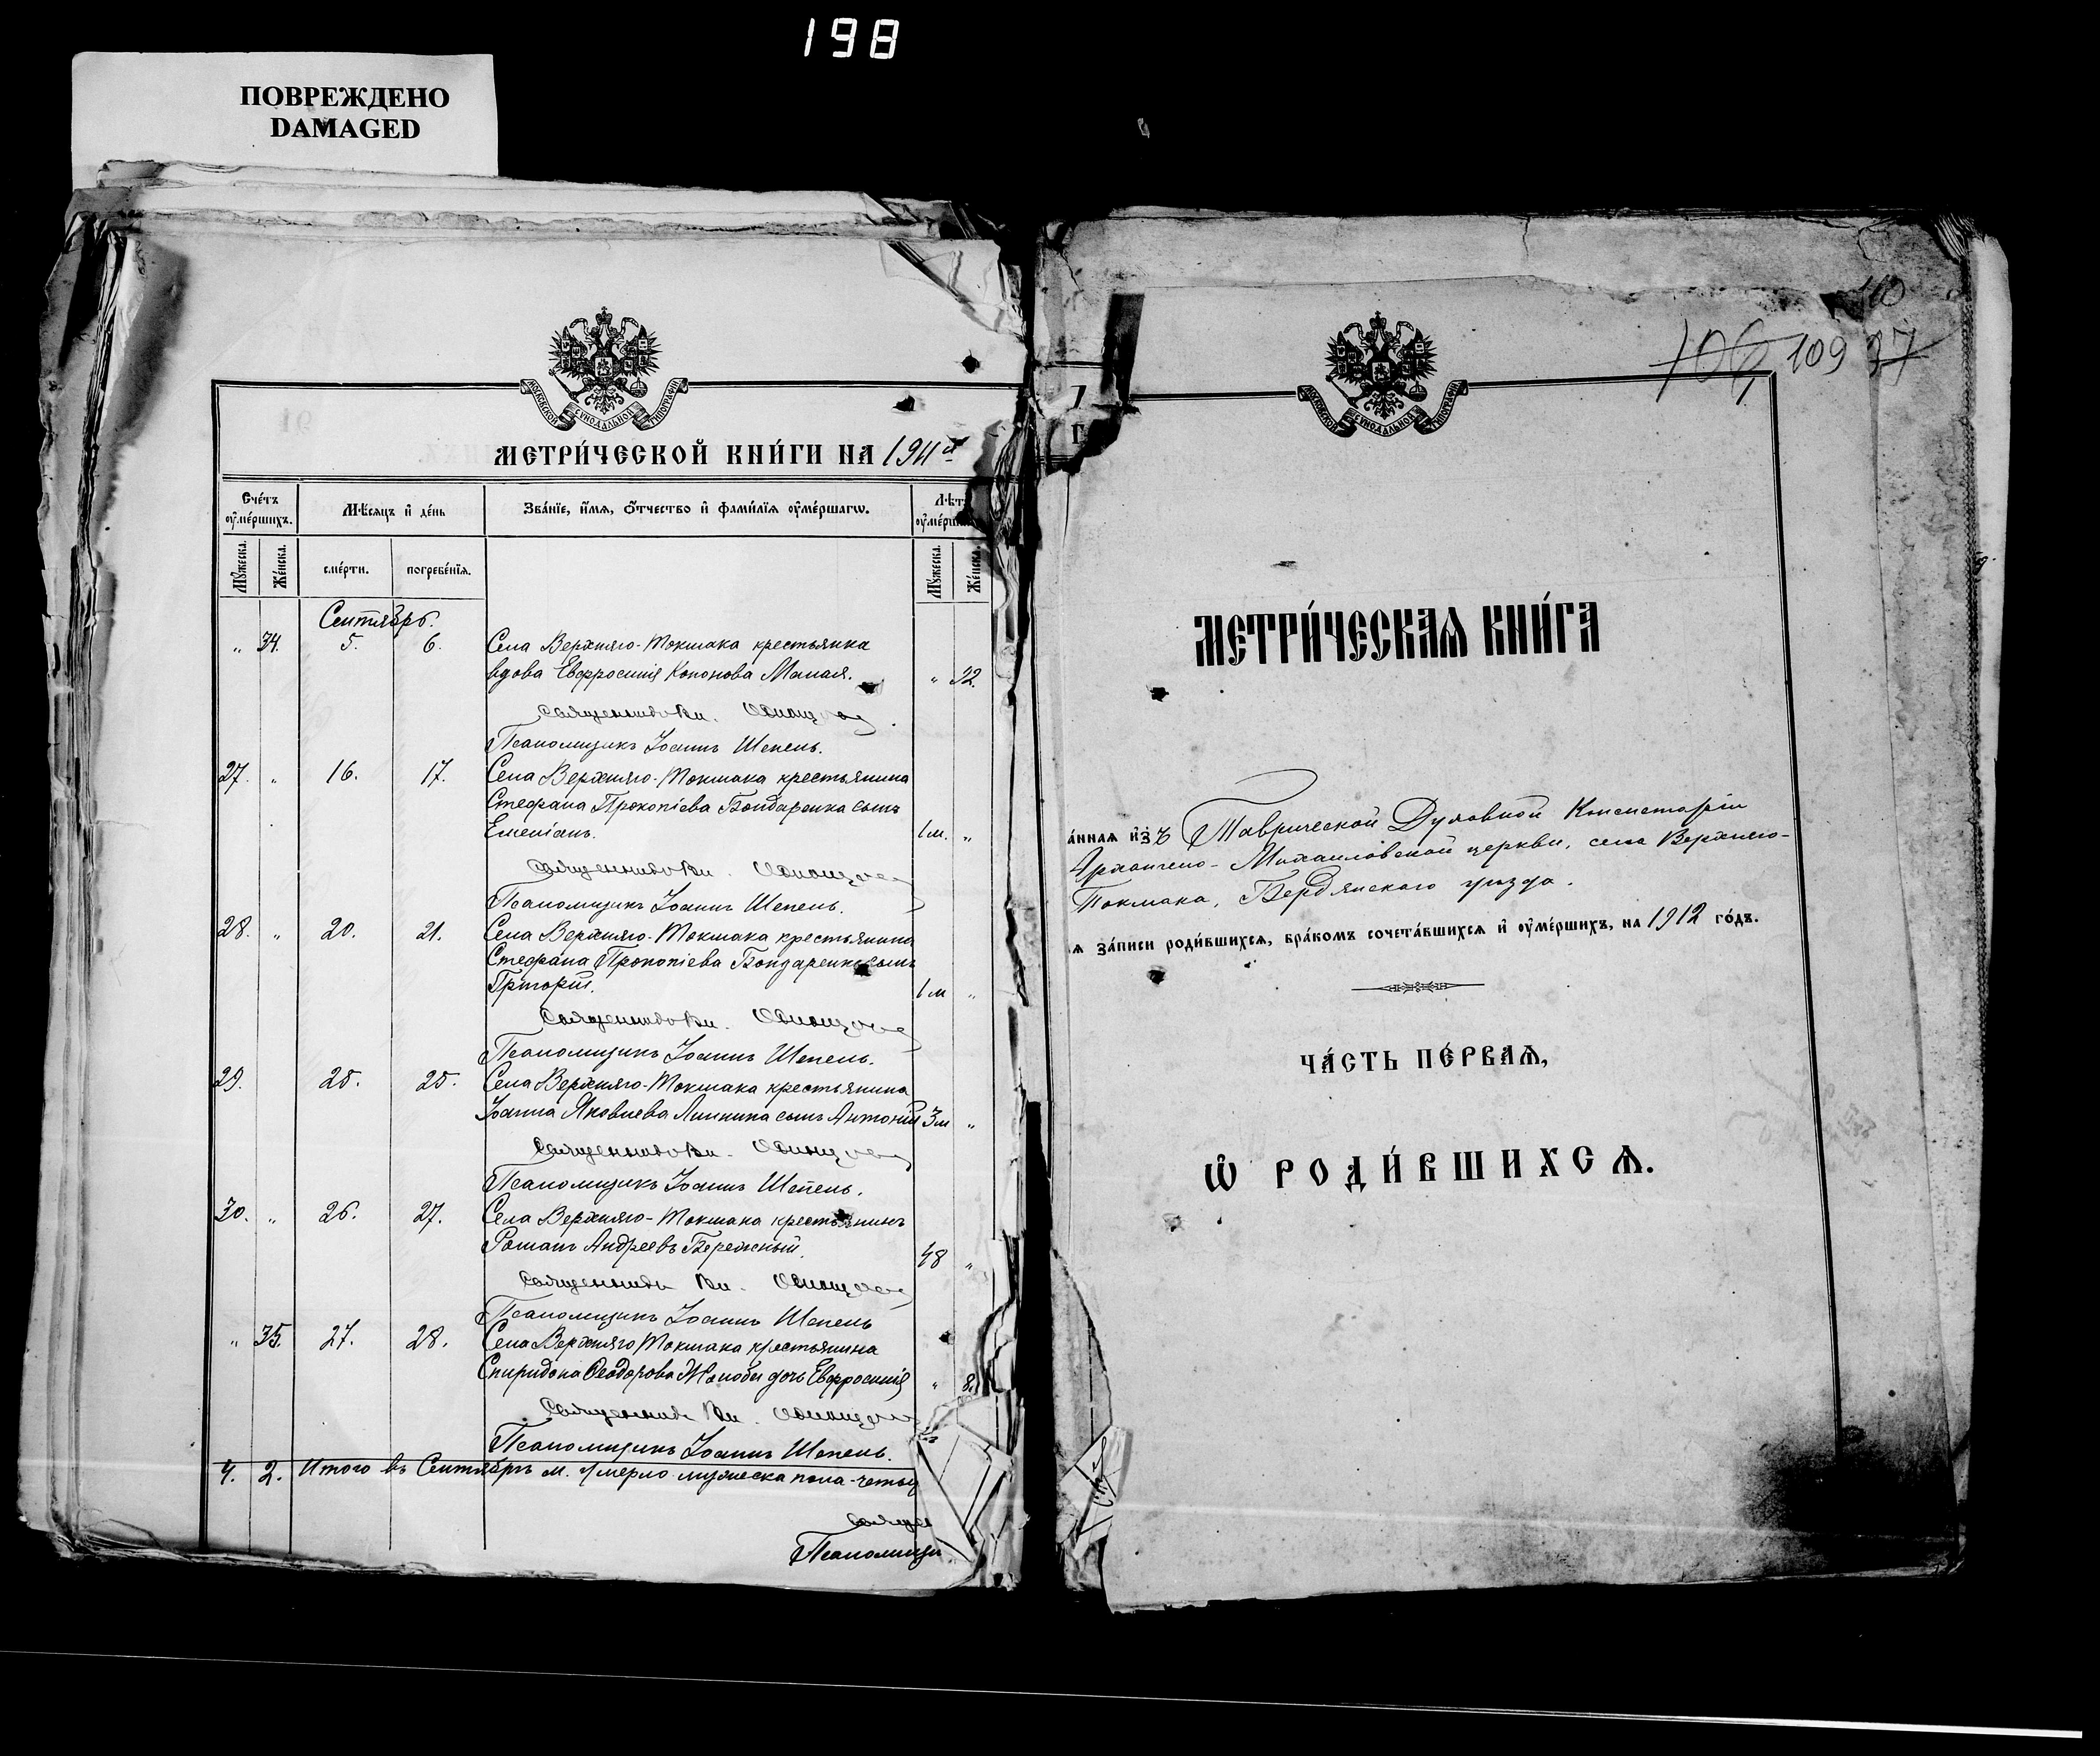 198
ПОВРЕЖДЕНО
DAMAGED
МОСКОВСКОЙ СѴНОДАЛЬНОЙ ТИПОГРАФІИ
МЕТРИ́ЧЕСКОЙ КНИ́ГИ НА 1911й
Сче́тъ ᲂу҆ме́ршихъ. Мѣ́сяцъ и҆ де́нь Зва́нїе, и҆́мя, ѻ҆́тчество и҆ фами́лїя ᲂу҆ме́ршагѡ. Лѣт ᲂу҆ме́рш
Мꙋ́жеска. Же́нска. сме́рти. погребе́нїя. Мꙋ́жеска. Же́нска.
Сентябрь.
„ 34. 5. 6. Села Верхняго-Токмака крестьянка
вдова Евфросинія Кононова Малая. „ 92.
Священникъ Вл.
Псаломщикъ Іоаннъ Шепель.
27. „ 16. 17. Села Верхняго-Токмака крестьянина
Стефана Прокопіева Бондаренка сынъ
Емеліанъ. 1 м. „
Священникъ Вл.
Псаломщикъ Іоаннъ Шепель.
28. „ 20. 21. Села Верхняго-Токмака крестьянина
Стефана Прокопіева Бондаренка сынъ
Григорій. 1 м „
Священникъ Вл.
Псаломщикъ Іоаннъ Шепель.
29. 25. 25. Села Верхняго-Токмака крестьянина
Іоанна Яковлева сынъ Антоній 3 м „
Священникъ Вл.
Псаломщикъ Іоаннъ Шепель.
30. „ 26. 27. Села Верхняго-Токмака крестьянинъ
Романъ Андреевъ Бережный. 48 „
Священникъ Вл.
Псаломщикъ Іоаннъ Шепель
„ 35. 27. 28. Села Верхняго Токмака крестьянина
Спиридона Ѳеодорова дочь Евфросинія „ 8.
Священникъ Вл.
Псаломщикъ Іоаннъ Шепель.
4. 2. Итого въ Сентябрѣ м. умерло мужеска пола - четы
Священ
Псаломщи
110
106 109 37
МОСКОВСКОЙ СѴНОДАЛЬНОЙ ТИПОГРАФІИ
МЕТРИ́ЧЕСКАѦ КНИ́ГА
а́нная и҆зъ Таврической Духовной Консисторіи
Архангело-Михаиловской церкви, села Верхняго-
Токмака, Бердянскаго уѣзда.
я за́писи роди́вшихся, бра́комъ сочета́вшихся и҆ ᲂу҆ме́ршихъ, на 1912 го́дъ.
ЧА́СТЬ ПЕ́РВАѦ,
Ѡ҆ РОДИ́ВШИХСѦ.